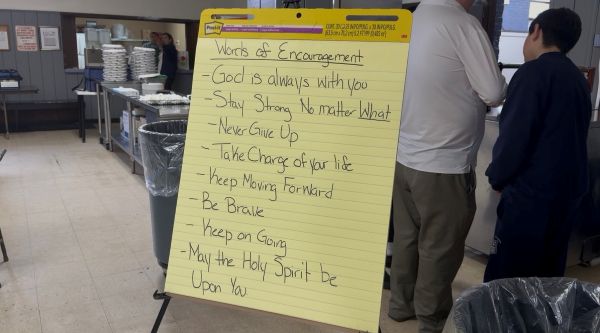 Post-it
Words of Encouragement
- God is always with you
- Stay Strong No matter What
- Never Give Up
- Take Charge of your life
- Keep Moving Forward
- Be Brave
- Keep on Going
- May the Holy Spirit be
Upon You